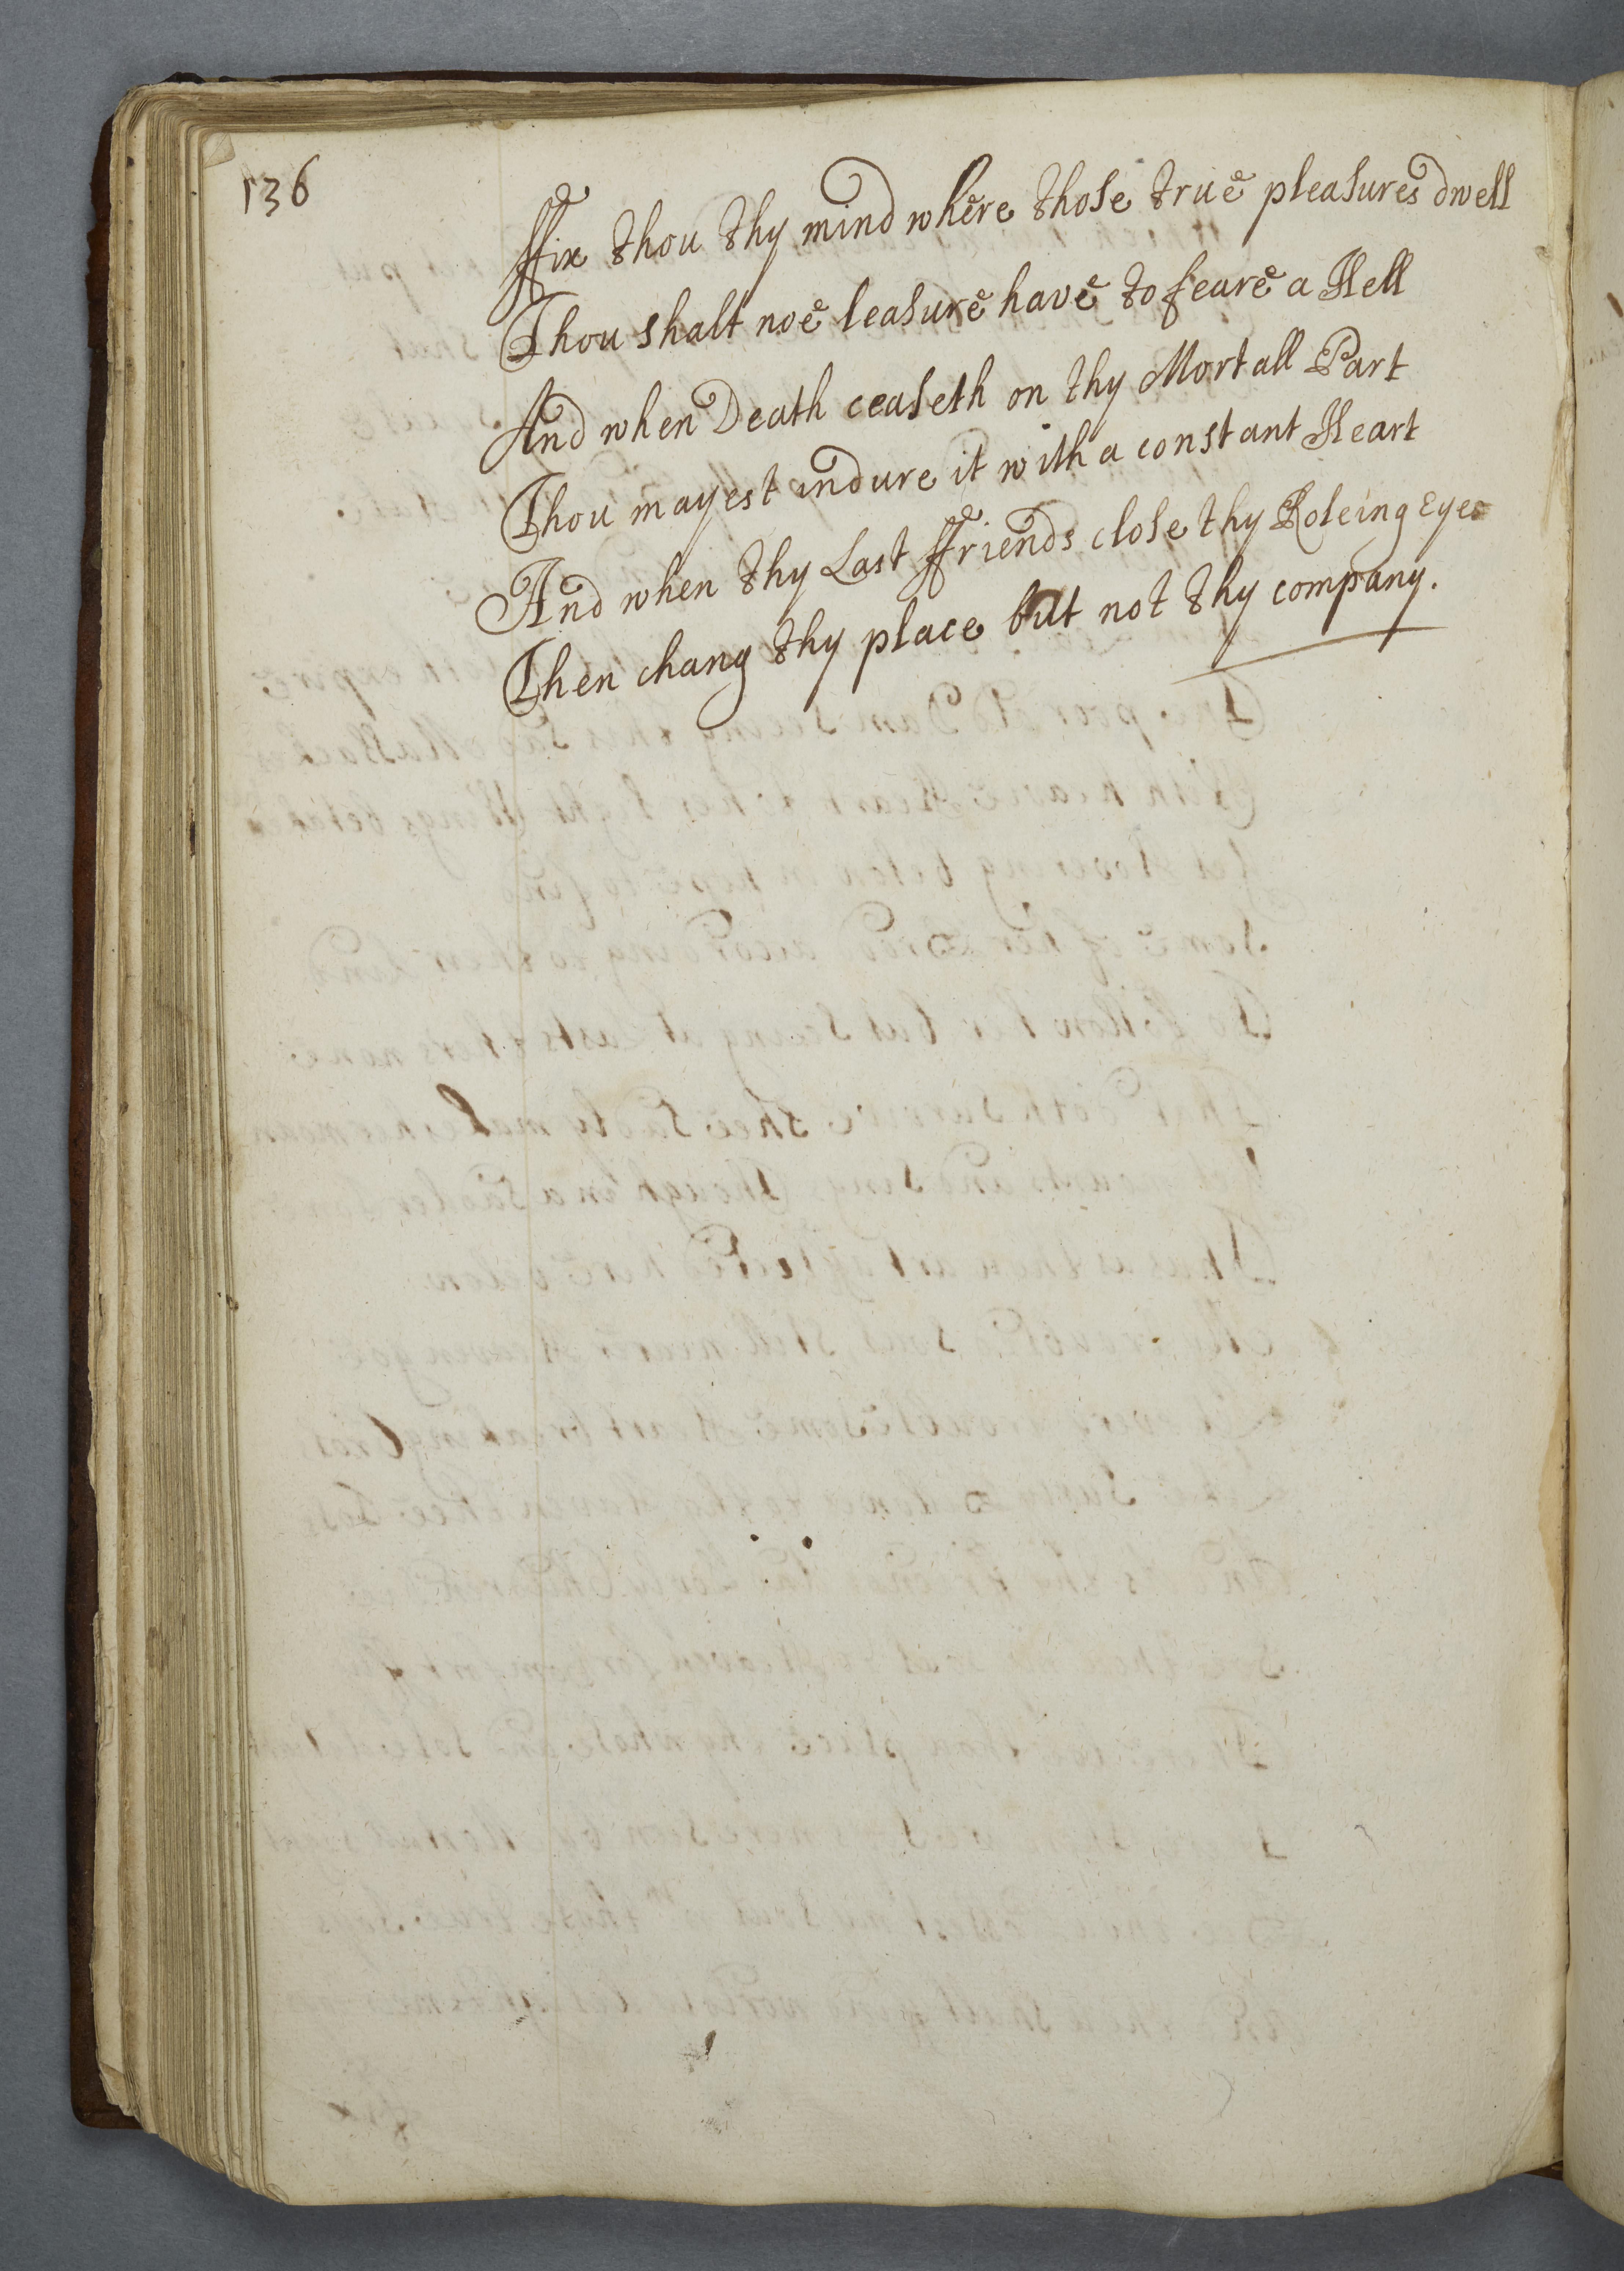 136
ffix thou thy mind where those true pleasures dwell
Thou shalt noe leasure have to feare a Hell
And when Death ceaseth on thy Mortall Part
Thou mayest indure it with a constant Heart
And when thy Last ffriends close thy Roleing Eyes
Then chang thy place but not thy company.